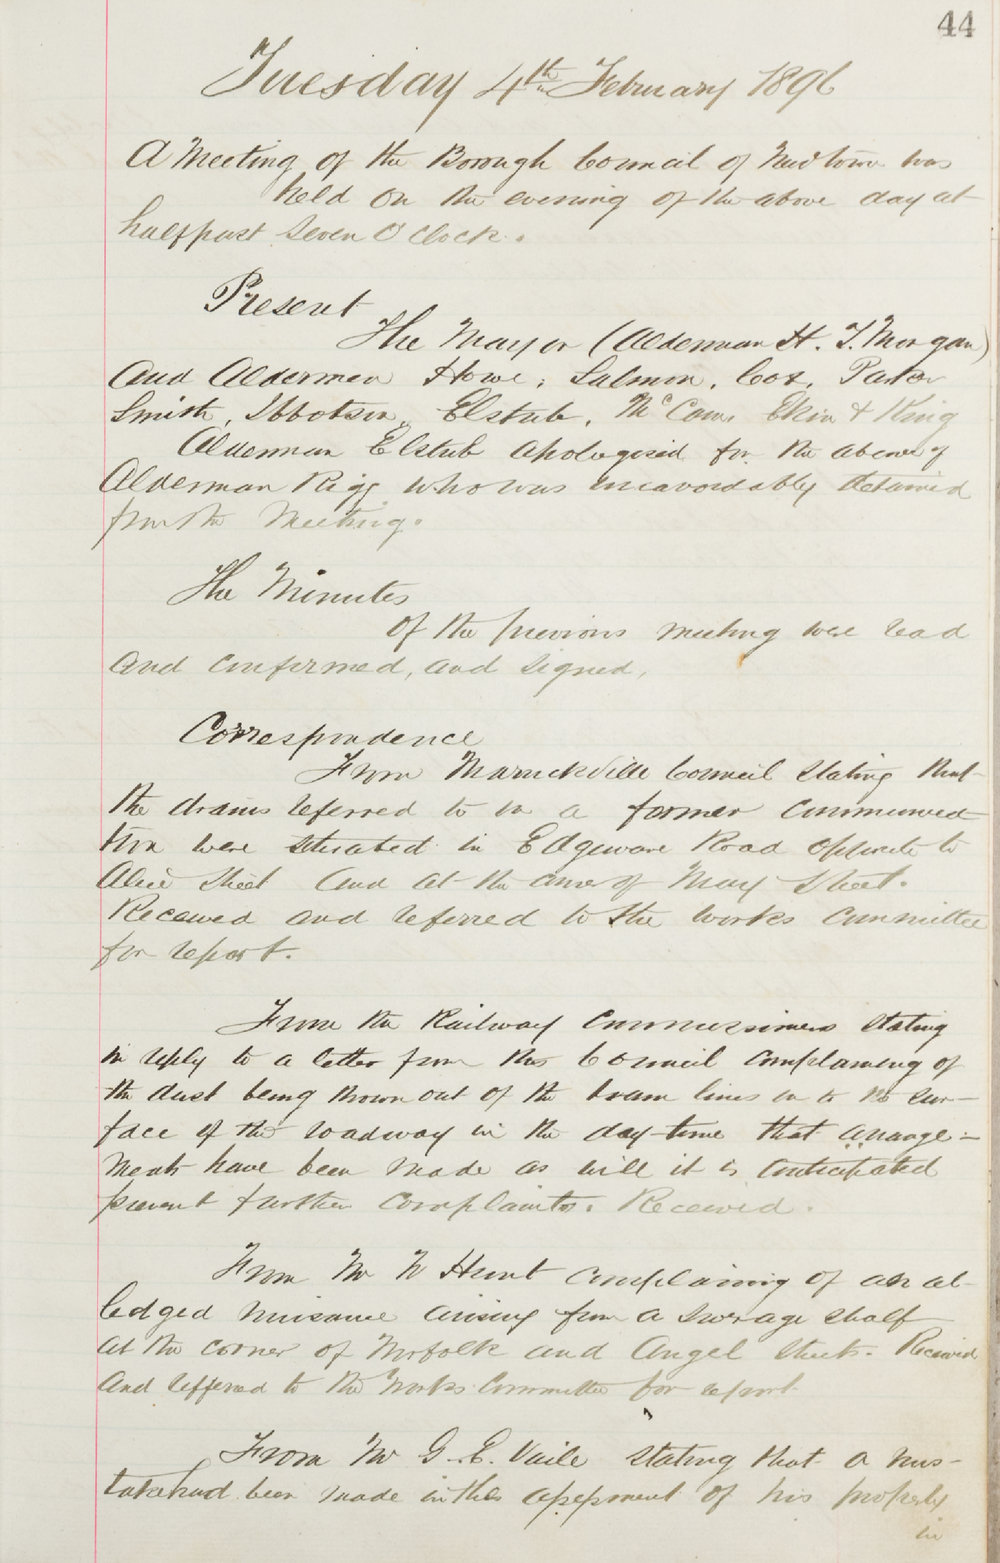 44
Tuesday 4th February 1896
A Meeting of the Borough Council of Newtown was
held on the evening of the above day at
halfpast Seven O'Clock.
Present
The Mayor (Alderman H. T. Morgan)
And Aldermen Howe, Salmon, Cox, Parker
Smith, Ibbotson, Elstub, McCam, Ekin & King
Alderman Elstub apologised for the absence of
Alderman Rigg who was unavoidably detained
from the Meeting.
The Minutes
Of the previous meeting were read
and confirmed, and signed,
Correspondence
From Marrickville Council stating that
the drains referred to in a former communica
tion were situated in Edgeware Road opposite to
Alice Street and at the corner of May Street.
Received and referred to the Works Committee
for report.
From the Railway Commissioners stating
in reply to a letter from this Council complaining of
the dust being thrown out of the tram lines on to the sur-
face of the roadway in the day-time that arrange-
ments have been made as will it is anticipated
prevent further complaints. Received.
From Mr W Hunt complaining of an al-
ledged nuisance arising from a sewerage shaft
at the corner of Norfolk and Angel Streets. Received
and reffered to the Works Committee for report
From Mr G. E. Vaile stating that a mis-
take had been made in the assessment of his property
in